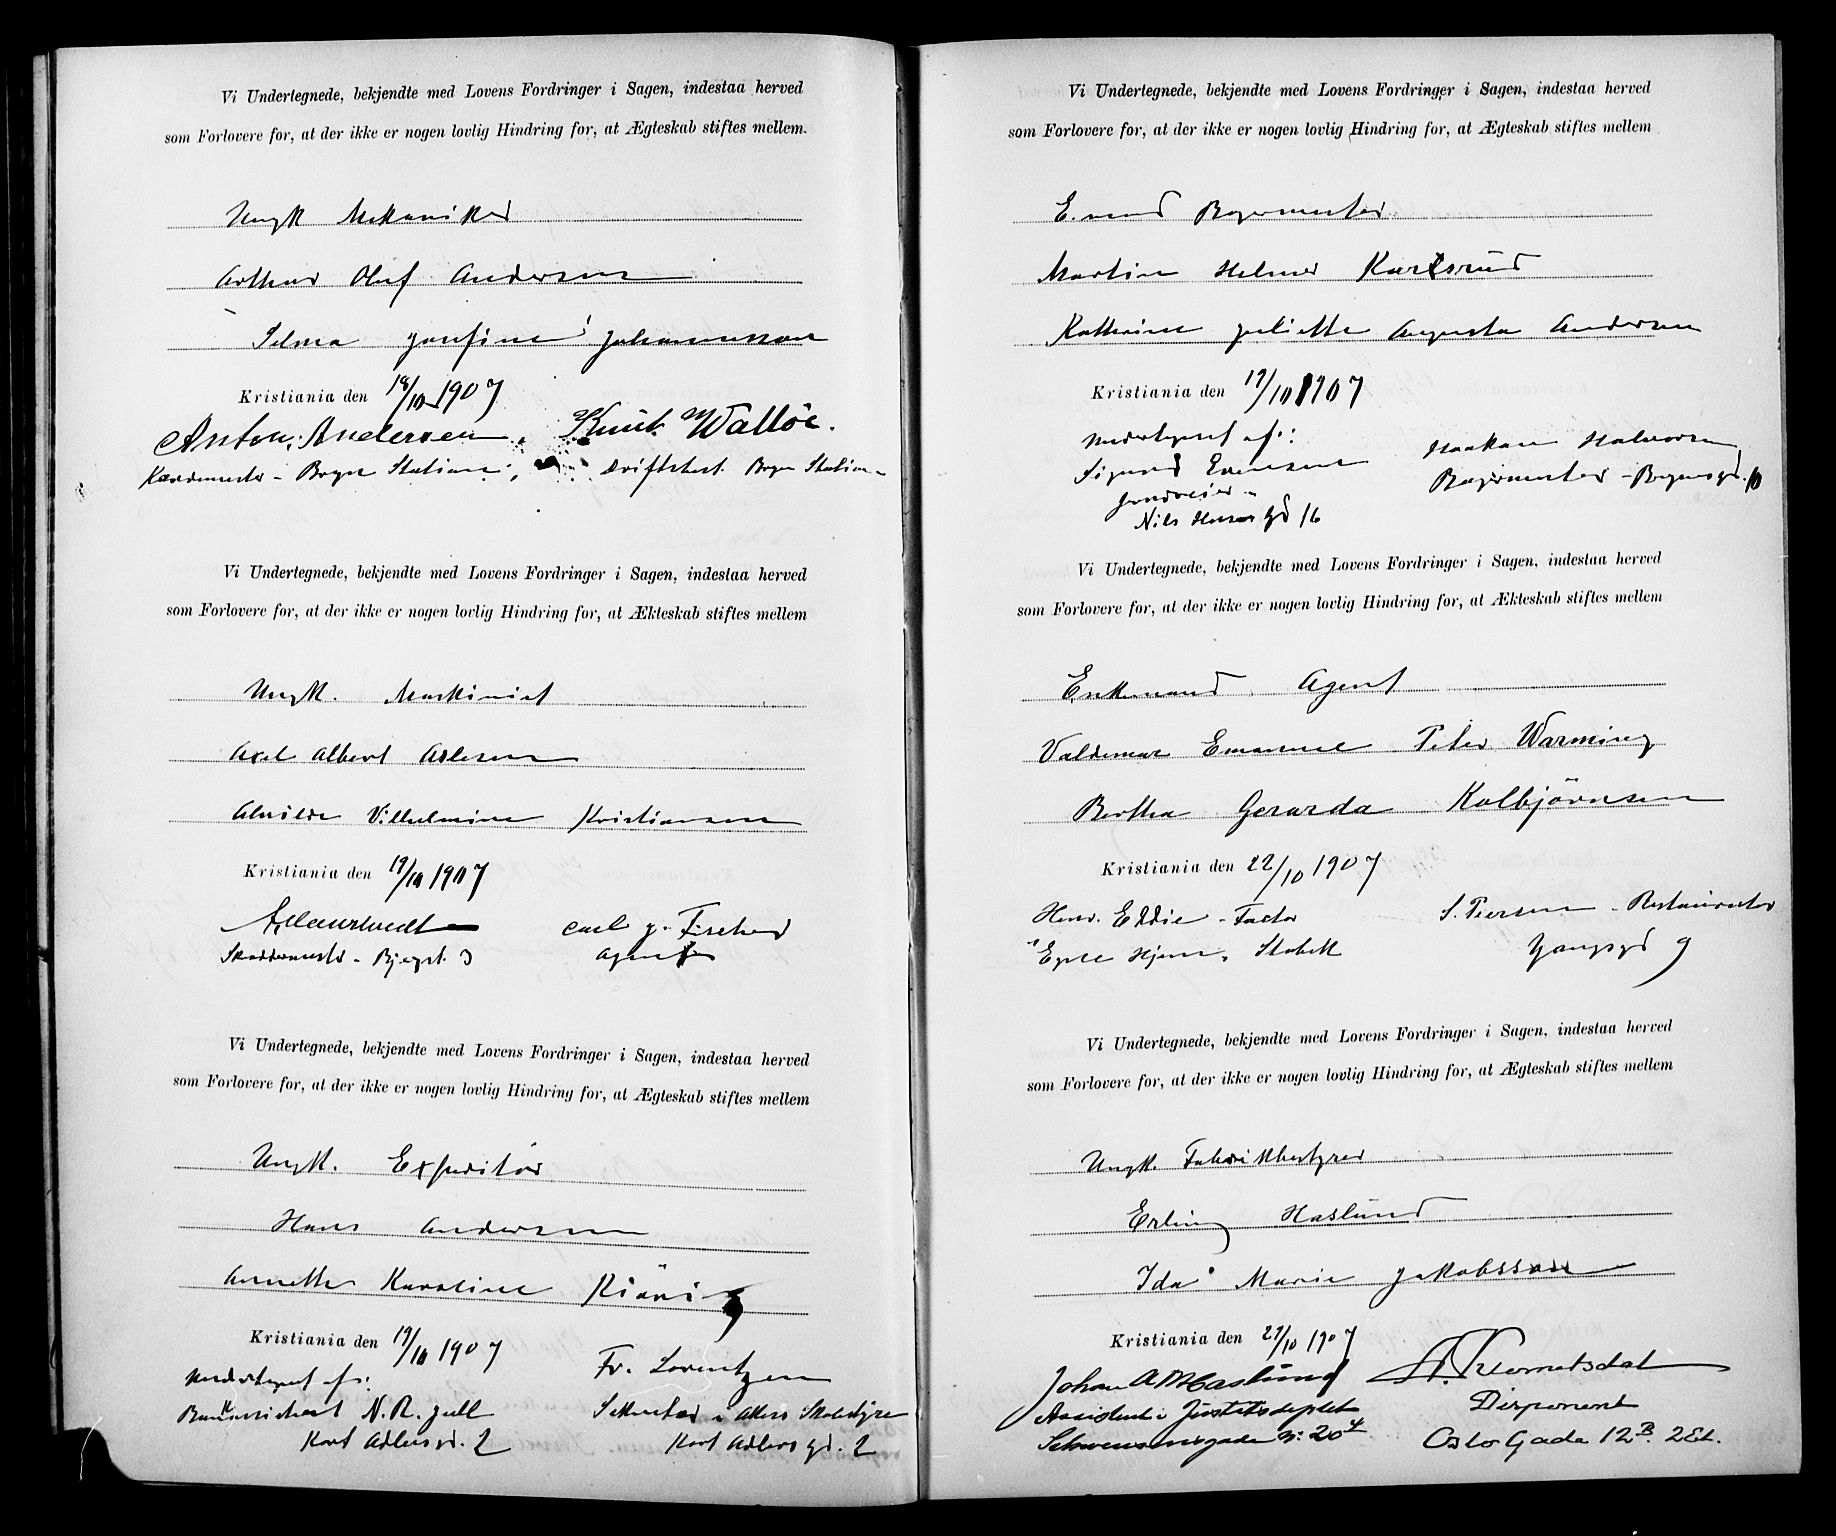 Vi Undertegnede, bekjendte med Lovens Fordringer i Sagen, indestaa herved
som Forlovere for, at der ikke er nogen lovlig Hindring for, at Ægteskab stiftes mellem
Ungk Mekaniker
Arthur Olaf Andersen
Selma Josefine Johannesson
Kristiania den 18/10 1907
Anton Andersen, Knut Walløe.
Bryn Station, Bryn Station
Vi Undertegnede, bekjendte med Lovens Fordringer i Sagen, indestaa herved
som Forlovere for, at der ikke er nogen lovlig Hindring for, at Ækteskab stiftes mellem
Ungk. Maskinist
Axel Albert Aslesen
Alvilde Vilhelmine Kristiansen
Kristiania den 19/10 1907
Carl J. Fischer
Skreddermester - 3 Agent
Vi Undertegnede, bekjendte med Lovens Fordringer i Sagen, indestaa herved
som Forlovere for, at der ikke er nogen lovlig Hindring for, at Ægteskab stiftes mellem
Ungk. Expeditör
Hans Andersen
Annette Karoline Kiönig
Kristiania den 19/10 1907
Undertegnet af: Fr. Lorentzen
N. R. Jull Sekretær i Akers Skolestyre
Kort Adlersgd. 2 Kort Adlersgd. 2
Vi Undertegnede, bekjendte med Lovens Fordringer i Sagen, indestaa herved
som Forlovere for, at der ikke er nogen lovlig Hindring for, at Ægteskab stiftes mellem
E.mand Bagermester
Martin Helmer Karlsrud
Kathrine Juliette Augusta Andersen
Kristiania den 19/10 1907
Undertegnet af: Haakon Halvorsen
Sigurd Evensen Bagermester - 10
Nils Huus gd 16
Vi Undertegnede, bekjendte med Lovens Fordringer i Sagen, indestaa herved
som Forlovere for, at der ikke er nogen lovlig Hindring for, at Ækteskab stiftes mellem
Enkemand Agent
Valdemar Emanuel Peter Warming
Bertha Gerarda Kolbjörnsen
Kristiania den 22/10 1907
Henr. Eddie - Factor S. Piersen - Restauratör
Eget Hjem, Stabekk 9
Vi Undertegnede, bekjendte med Lovens Fordringer i Sagen, indestaa herved
som Forlovere for, at der ikke er nogen lovlig Hindring for, at Ægteskab stiftes mellem
Ungk. Fabrikbestyrer
Erling Haslund
Ida Marie Jakobsson
Kristiania den 21/10 1907
Johan A M Haslund
Assistent i Justitsdeptet Disponent
Schwensensgade No 20 Oslo Gade 12 B. 2 Et.